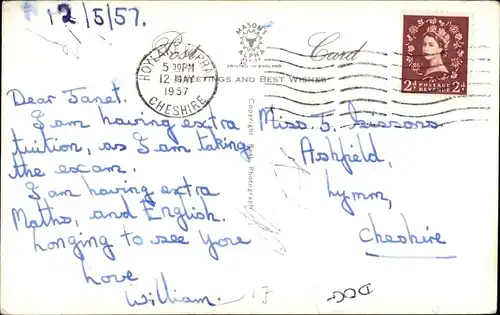 12/5/57.
MASON'S
ALPHA
Post Card
PRINTED IN ENGLAND
GREETINGS AND BEST WISHES
HOYLAKE WIRRAL
5 30PM
12 MAY
1957
CHESHIRE
2D POSTAGE REVENUE 2D
Dear Janet.
I am having extra
tuition, as I am taking
the exam.
I am having extra
Maths, and English.
Longing to see you
Love
William.
Copyright Photograph
Miss J. Sissons
Ashfield,
Lymm,
Cheshire
17
DCG